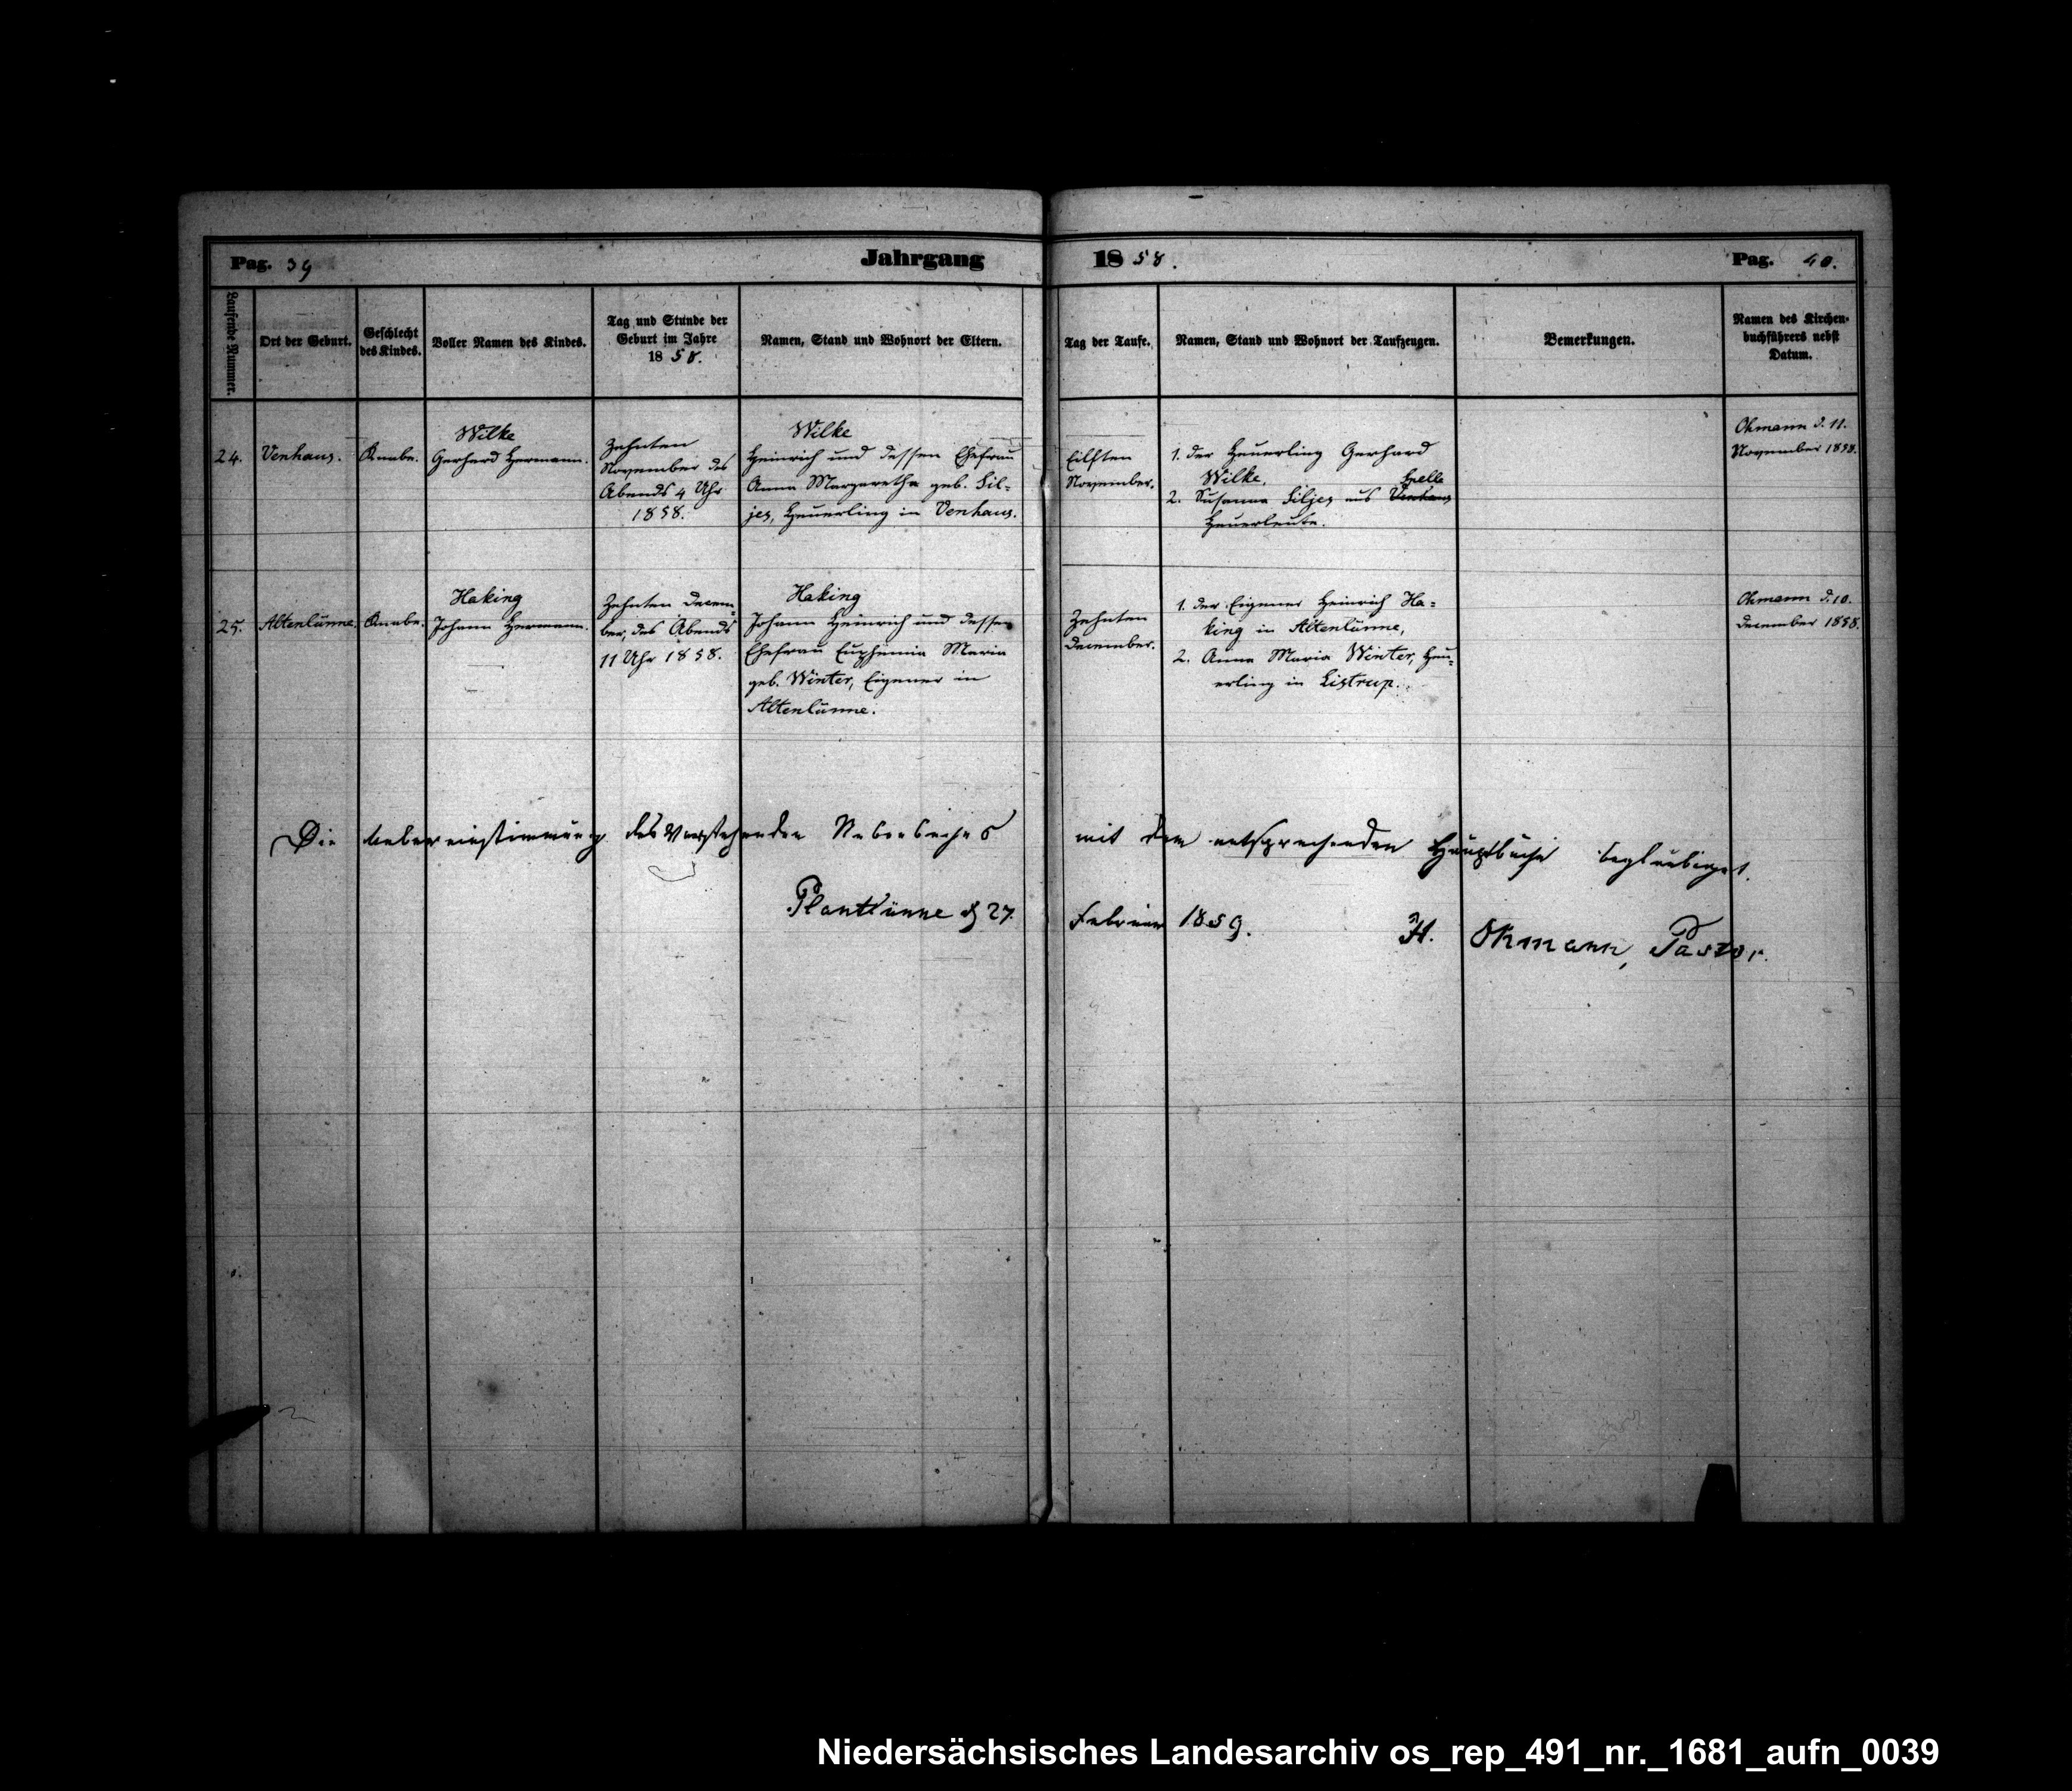 Pag. 39
Jahrgang
1858.
Pag. 40.
Laufende Nummer.
Ort der Geburt.
Geschlecht
des Kindes.
Voller Namen des Kindes.
Tag und Stunde der
Geburt im Jahre
1858.
Namen, Stand und Wohnort der Eltern.
Tag der Taufe.
Namen, Stand und Wohnort der Taufzeugen.
Bemerkungen.
Namen des Kirchen-
buchführers nebst
Datum.
24.
Venhaus.
Knabe.
Wilke
Gerhard Hermann.
Zehnten
November des
Abends 4 Uhr
1858.
Wilke
Heinrich und dessen Ehefrau
Anna Margaretha geb. Sil-
jes, Heuerling in Venhaus.
Eilften
November.
1. der Heuerling Gerhard
Wilke.
2. Susanna Siljes aus Venhaus Spelle
Heuerleute.
Okmann d. 11.
November 1858.
25.
Altenlünne.
Knabe.
Haking
Johann Hermann.
Zehnten Decem-
ber, des Abends
11 Uhr 1858.
Haking
Johann Heinrich und dessen
Ehefrau Euphemia Maria
geb. Winter, Eigener in
Altenlünne.
Zehnten
December.
1. der Eigener Heinrich Ha=
king in Altenlünne,
2. Anna Maria Winter, Heu-
erling in Listrup.
Okmann d. 10.
December 1858.
Die Uebereinstimmung des vorstehenden Nebenbuches mit dem entsprechenden Hauptbuche beglaubiget.
Plantlünne d 27. Februar 1859. H. Okmann, Pastor.
Niedersächsisches Landesarchiv os_rep_491_nr._1681_aufn_0039